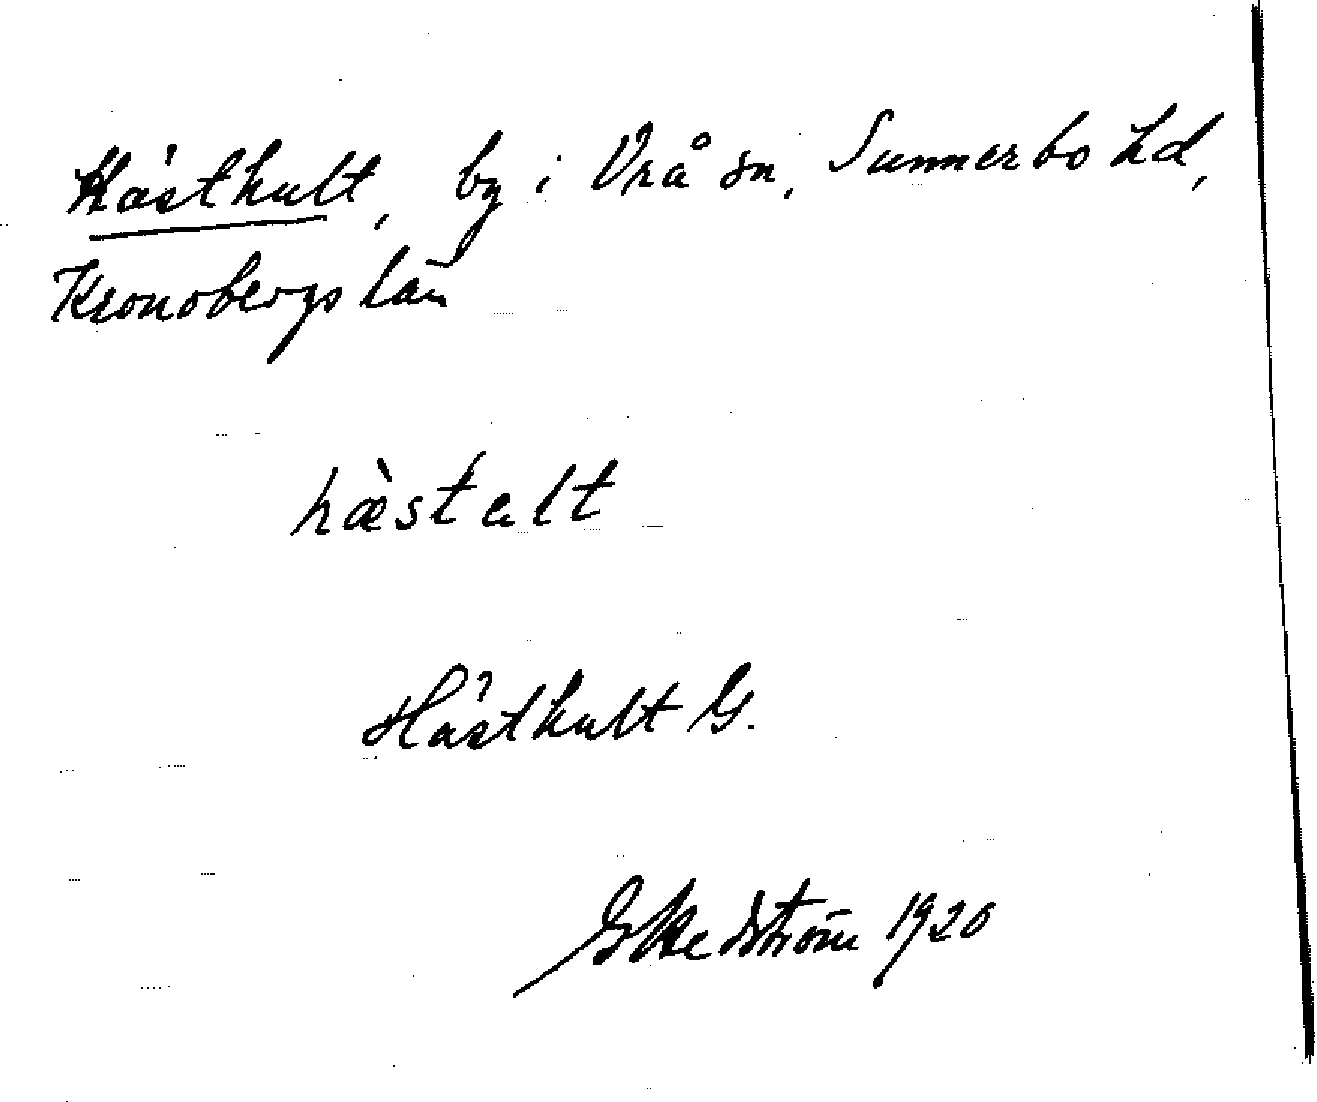 Hästhult, by i Vrå sn, Sunnerbo hd,
Kronobergs län
hæ̀stalt
Hästhult G.
G Hedström 1920